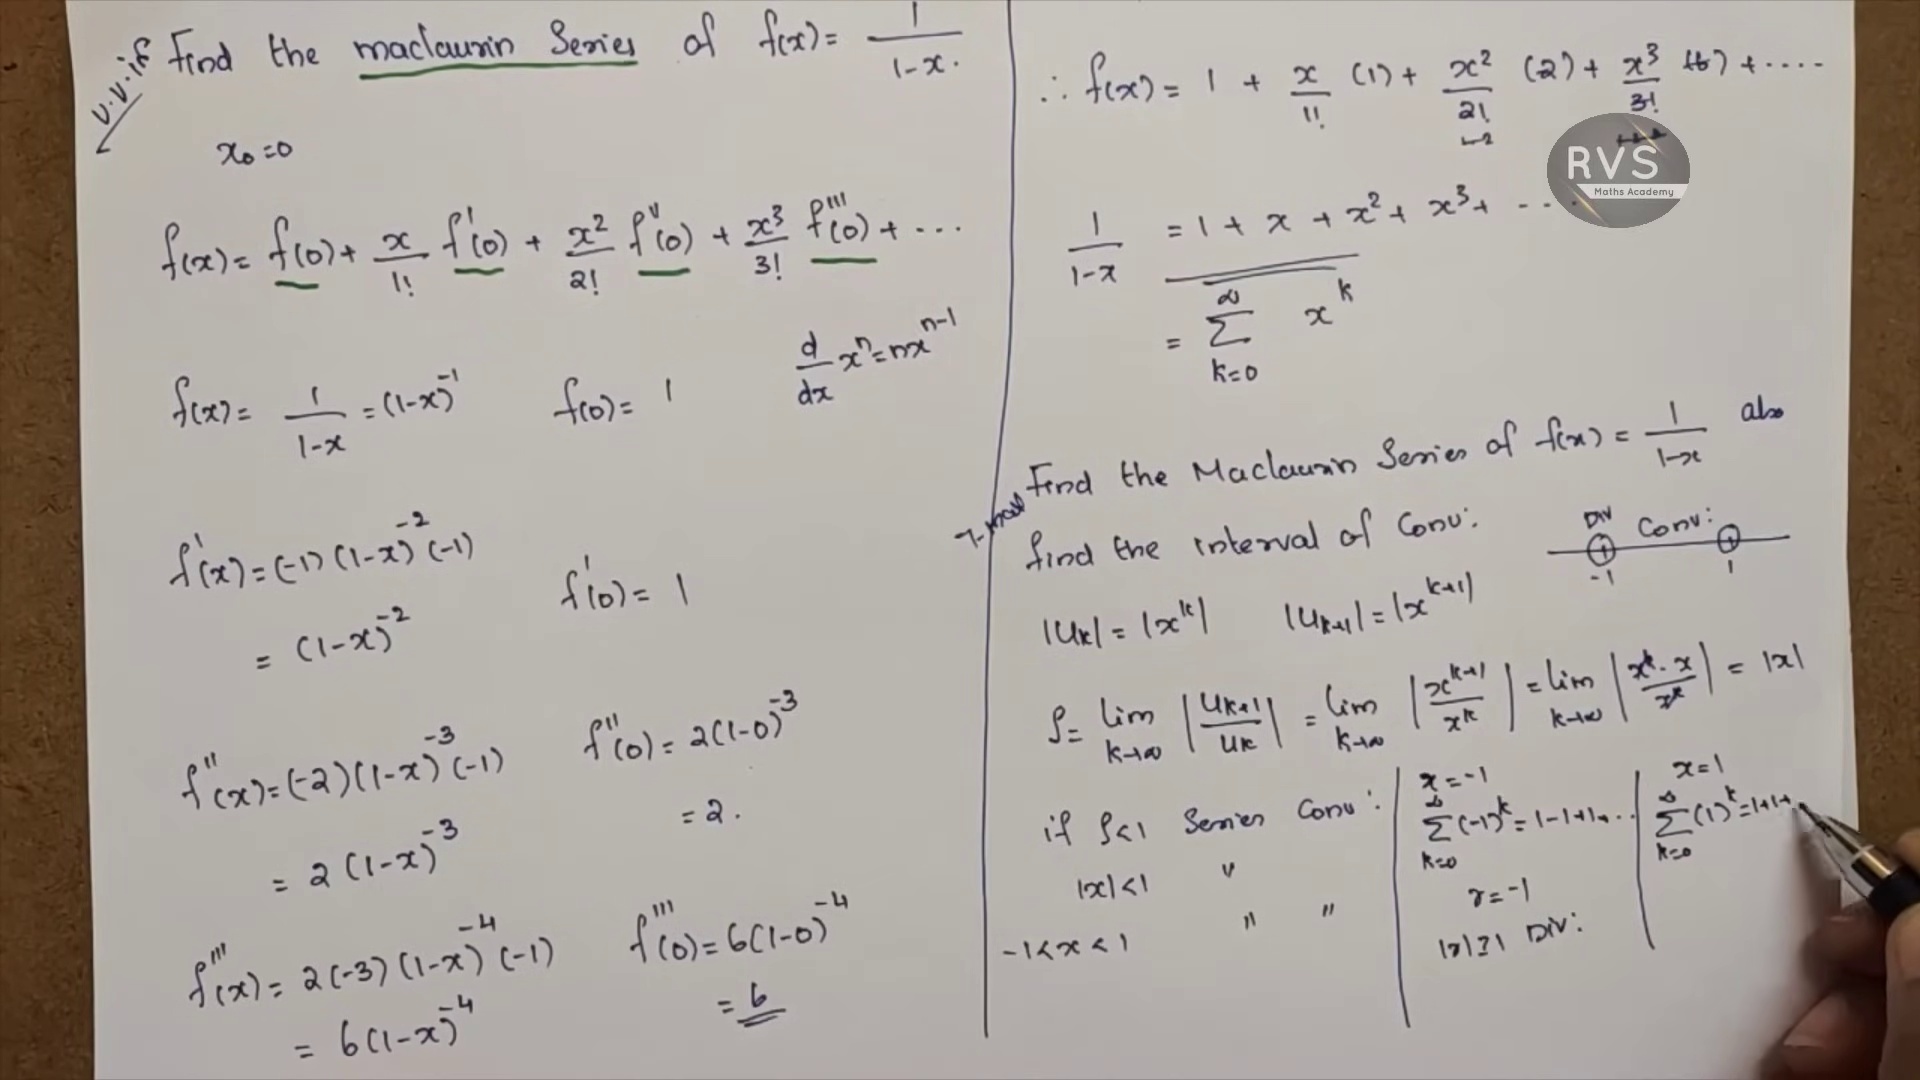 V.V.if Find the maclaurin Series of f(x) = 1/(1-x).
x₀=0
f(x) = f(0) + x/1! f'(0) + x²/2! f''(0) + x³/3! f'''(0) + ...
d/dx xⁿ = nxⁿ⁻¹
f(x) = 1/(1-x) = (1-x)⁻¹ f(0) = 1
f'(x) = (-1)(1-x)⁻²(-1) f'(0) = 1
= (1-x)⁻²
f''(x) = (-2)(1-x)⁻³(-1) f''(0) = 2(1-0)⁻³
= 2(1-x)⁻³ = 2.
f'''(x) = 2(-3)(1-x)⁻⁴(-1) f'''(0) = 6(1-0)⁻⁴
= 6(1-x)⁻⁴ = 6
∴ f(x) = 1 + x/1! (1) + x²/2! (2) + x³/3! (6) + ....
RVS
Maths Academy
1/(1-x) = 1 + x + x² + x³ + ...
= ∞ Σ k=0 xᵏ
Find the Maclaurin Series of f(x) = 1/(1-x) also
find the interval of Conv:
Div Conv:
-1 1
|Uₖ| = |xᵏ| |Uₖ₊₁| = |xᵏ⁺¹|
ρ = lim k→∞ |Uₖ₊₁/Uₖ| = lim k→∞ |xᵏ⁺¹/xᵏ| = lim k→∞ |xᵏ·x/xᵏ| = |x|
if ρ<1 Series Conv:
|x|<1 "
-1<x<1 " "
x=-1
∞ Σ k=0 (-1)ᵏ = 1-1+1+...
r=-1
|r|≥1 Div:
x=1
∞ Σ k=0 (1)ᵏ = 1+1+